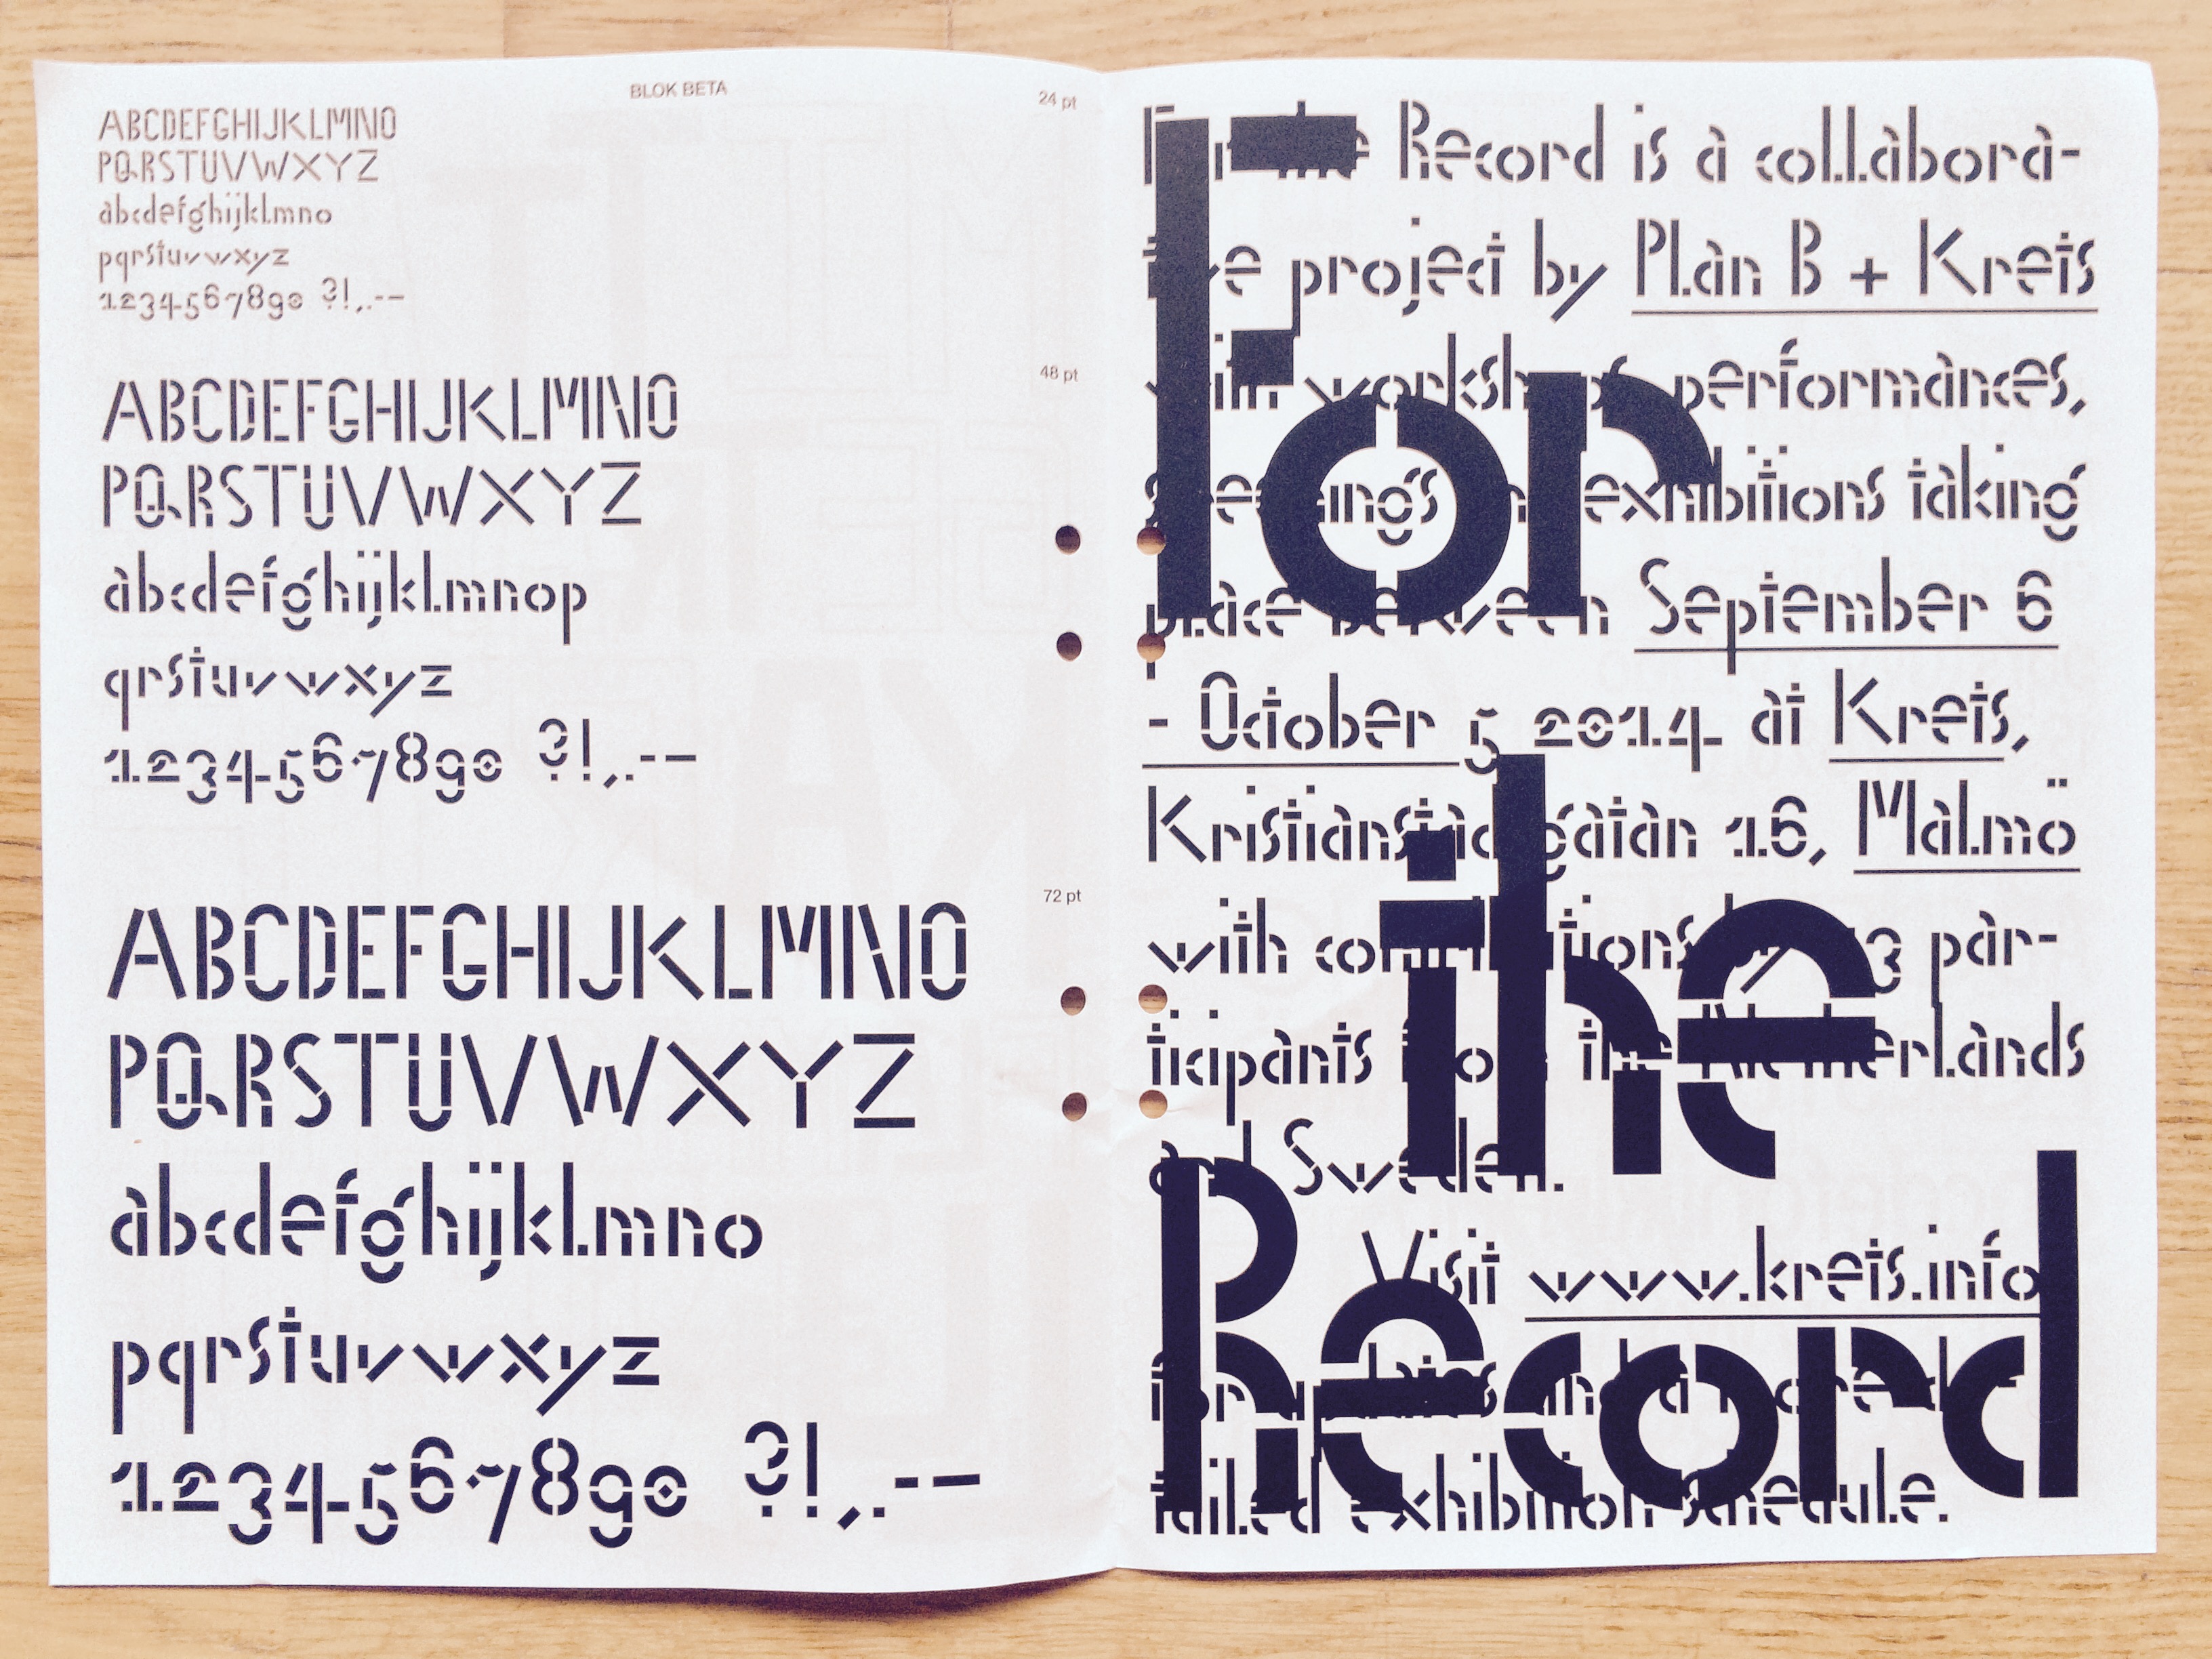 BLOK BETA
24 pt
ABCDEFGHIJKLMNO
PQRSTUVWXYZ
abcdefghijklmno
pqrstuvwxyz
1234567890 ?!,.--
48 pt
ABCDEFGHIJKLMNO
PQRSTUVWXYZ
abcdefghijklmnop
qrstuvwxyz
1234567890 ?!,.-–
72 pt
ABCDEFGHIJKLMNO
PQRSTUVWXYZ
abcdefghijklmno
pqrstuvwxyz
1234567890 ?!,.-–
For the Record is a collabora-
tive project by Plan B + Kreis
with workshops, performances,
screenings and exhibitions taking
place between September 6
- October 5 2014 at Kreis,
Kristianstadsgatan 16, Malmö
with contributions by 13 par-
ticipants from the Netherlands
and Sweden.
Visit www.kreis.info
for updates and a more de-
tailed exhibition schedule.
For
the
Record